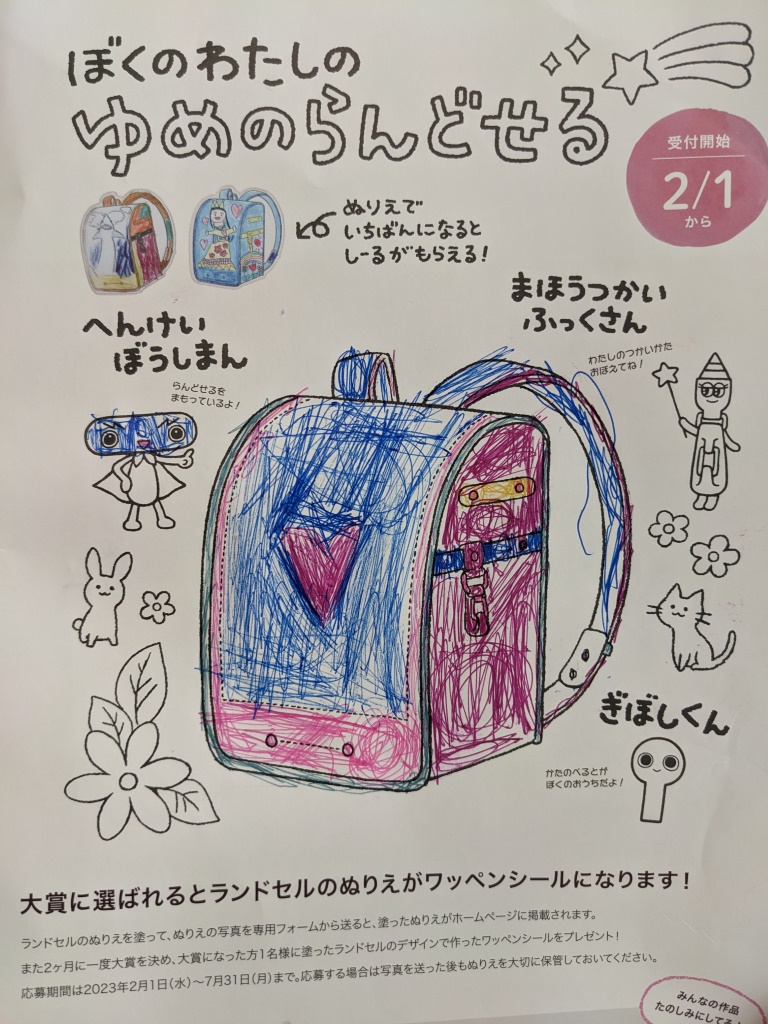 ぼくのわたしの
ゆめのらんどせる
受付開始
2/1
から
ぬりえで
いちばんになると
しーるがもらえる!
まほうつかい
ふっくさん
わたしのつかいかた
おぼえてね!
へんけい
ぼうしまん
らんどせるを
まもっているよ!
ぎぼしくん
かたのべるとが
ぼくのおうちだよ!
大賞に選ばれるとランドセルのぬりえがワッペンシールになります!
ランドセルのぬりえを塗って、ぬりえの写真を専用フォームから送ると、塗ったぬりえがホームページに掲載されます。
また2ヶ月に一度大賞を決め、大賞になった方1名様に塗ったランドセルのデザインで作ったワッペンシールをプレゼント!
応募期間は2023年2月1日(水)〜7月31日(月)まで。応募する場合は写真を送った後もぬりえを大切に保管しておいてください。
みんなの作品
たのしみにしてる